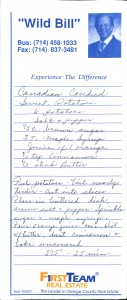 "Wild Bill"
Bus: (714) 458-1033
Fax: (714) 837-3481
Experience The Difference
Canadian Candied
Sweet Potatoes
6 potatoes
Salt & pepper
1/2 C. brown sugar
Maple Syrup
Juice of 1 orange
1/2 tsp Cinnamon
stick Butter
Peel potatoes Cook nearly
tender. Cut into slices
Place in buttered dish
salt & pepper Sprinkle
sugar & maple syrup
orange juice Dot
Butter cinnamon
Bake uncovered
375° 25 min
FIRSTEAM®
REAL ESTATE
The Leader in Orange County Real Estate